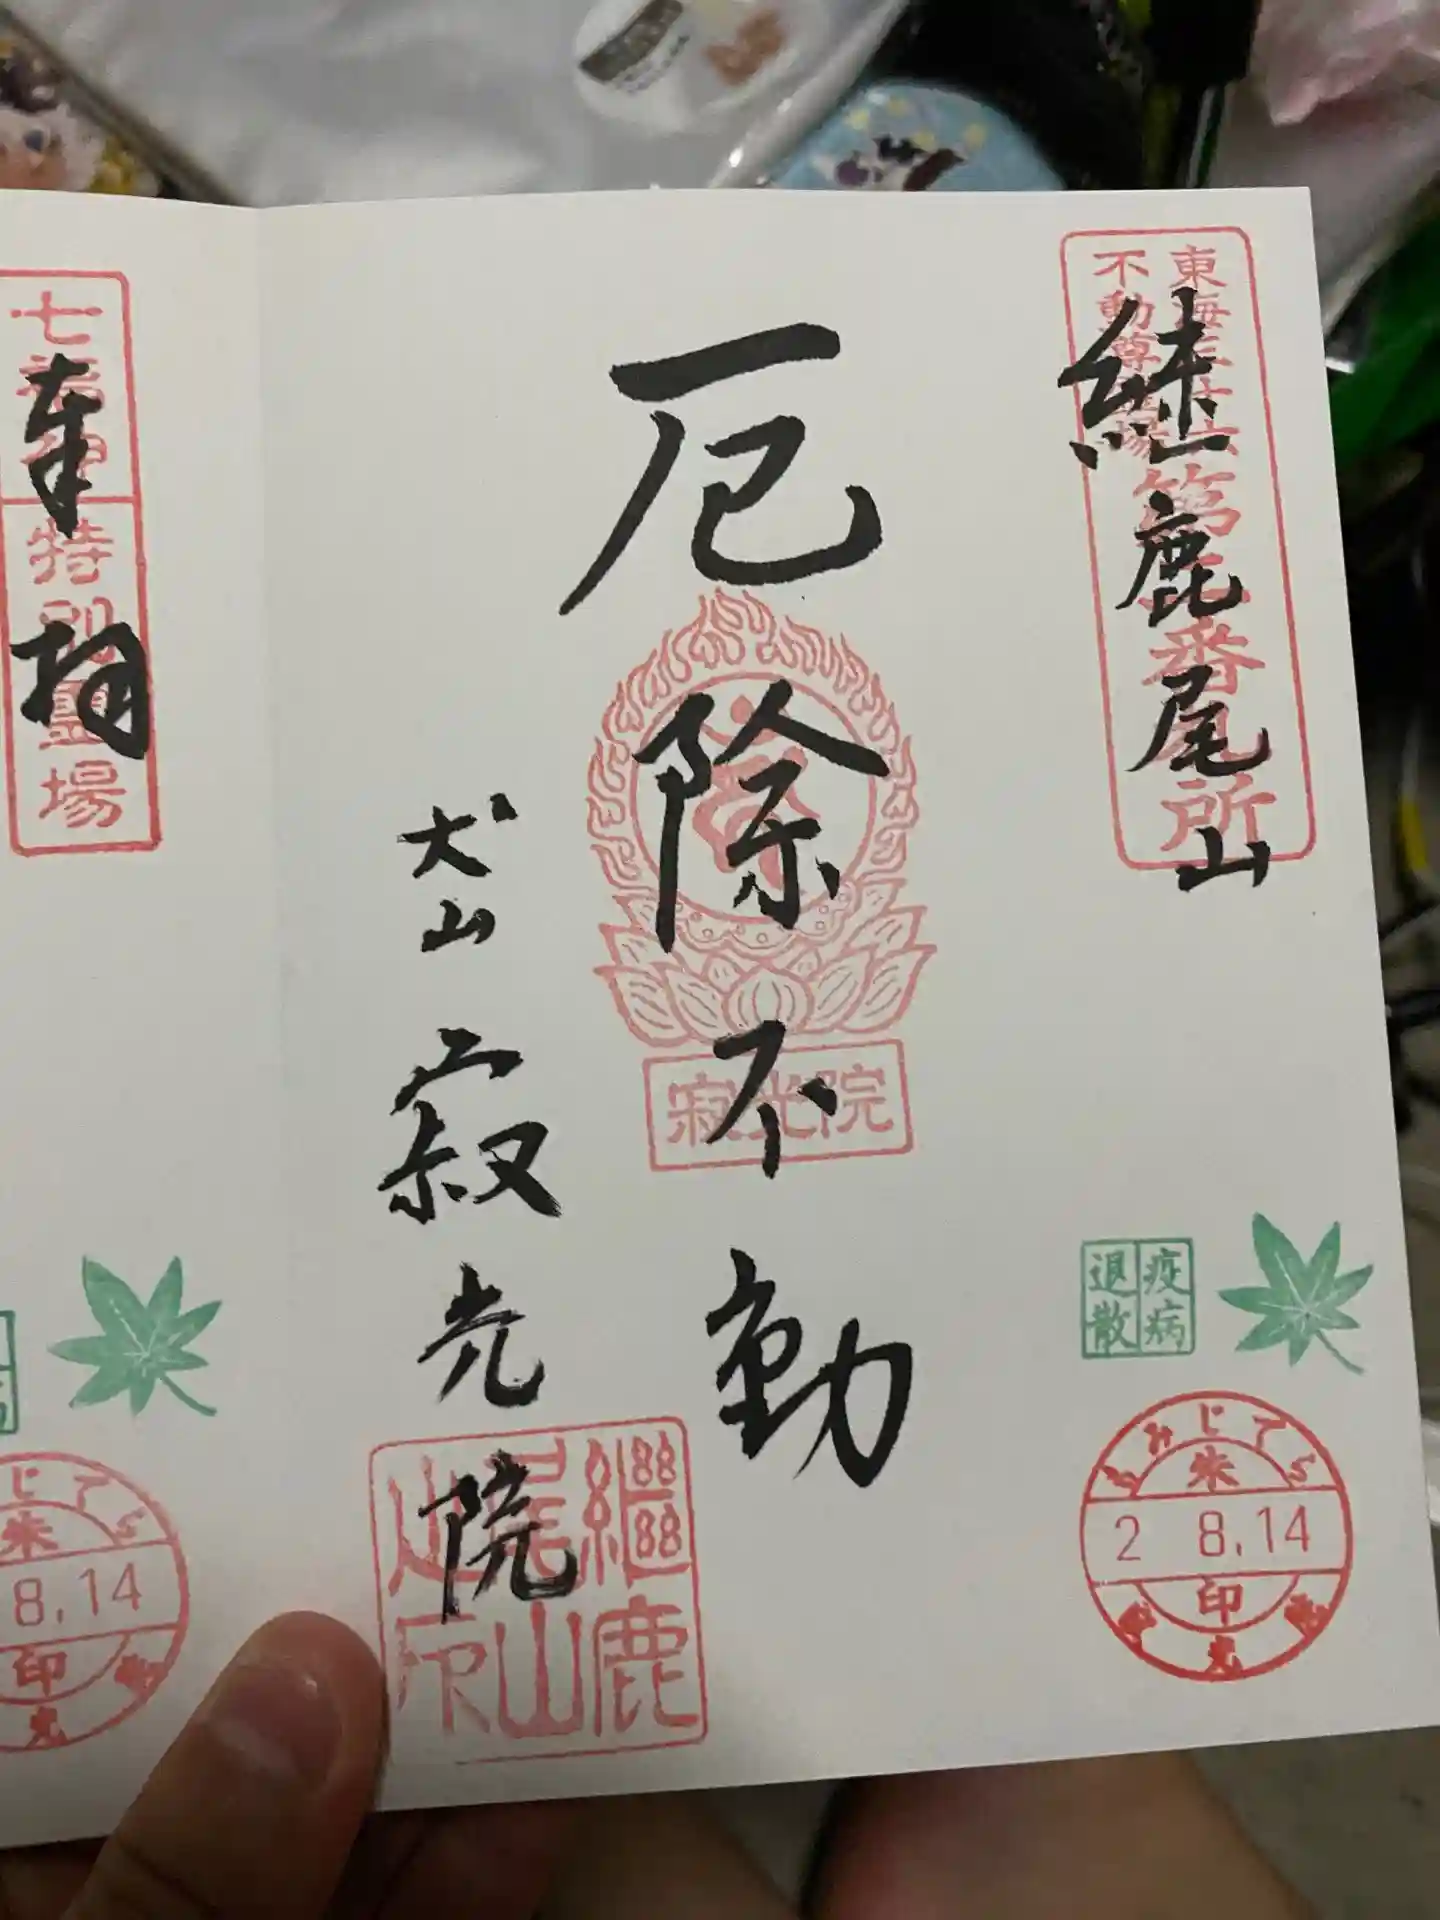 東海三十六
不動尊霊場
第三番札所
継鹿尾山
厄除不動
寂光院
犬山
寂光院
継鹿
尾山
山印
疫病
退散
もみじでら
朱
2 8.14
印
寂光院
七福神
特別霊場
奉拝
じでら
朱
8.14
印
光